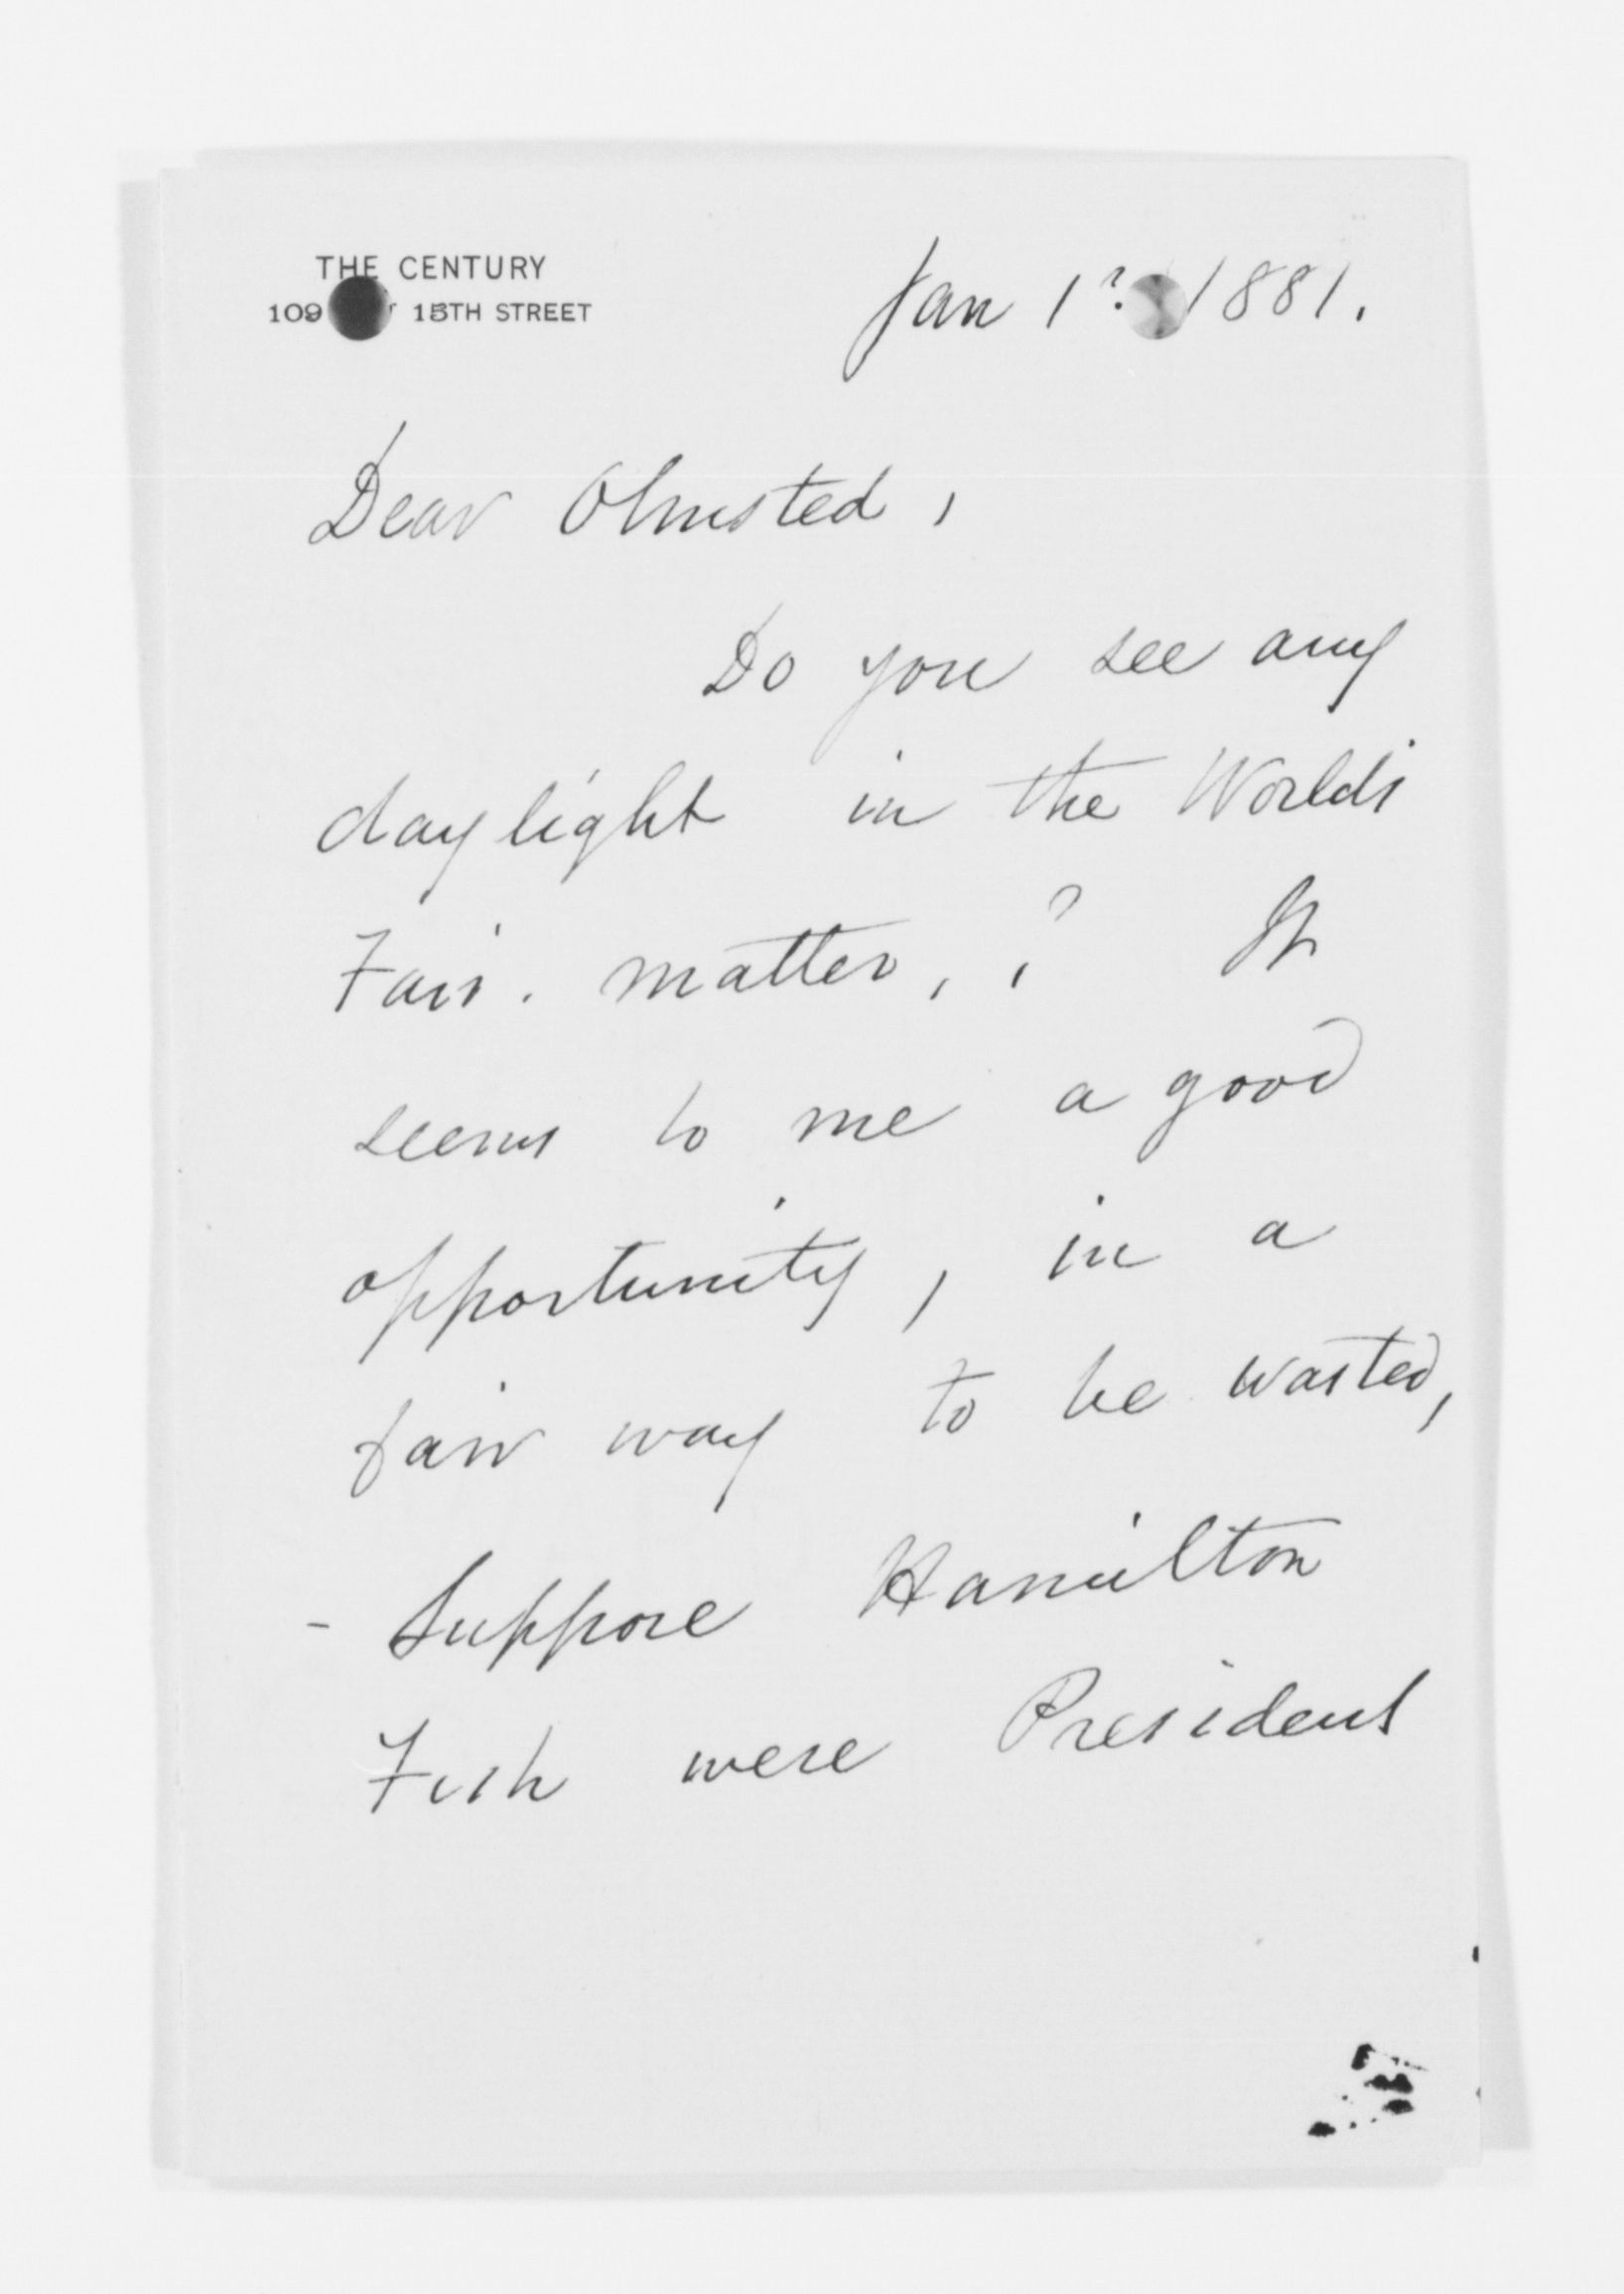 THE CENTURY
109 15TH STREET
Jan 1? 1881.
Dear Olmsted,
Do you see any
daylight in the Worlds
Fair. matter, ? It
seems to me a good
opportunity, in a
fair way to be wasted,
- Suppose Hamilton
Fish were President